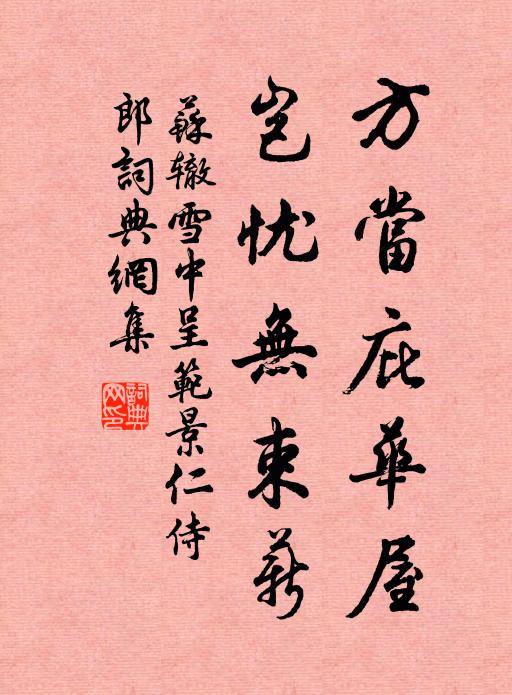 方當庇華屋
豈忧無束薪
蘇辙雪中呈範景仁侍
郎詞典網集
詞典網印